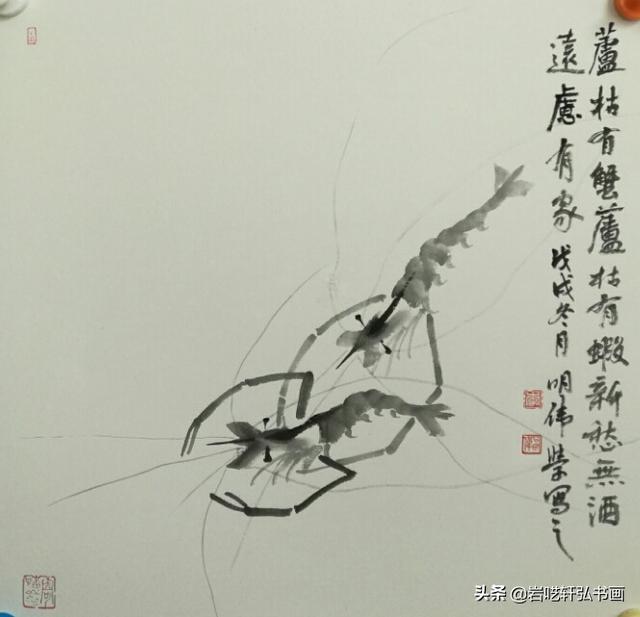 蘆枯有蟹蘆枯有蝦新愁無酒
遠慮有家戊戌冬月明偉榮寫之
头条 @岩呓轩弘书画